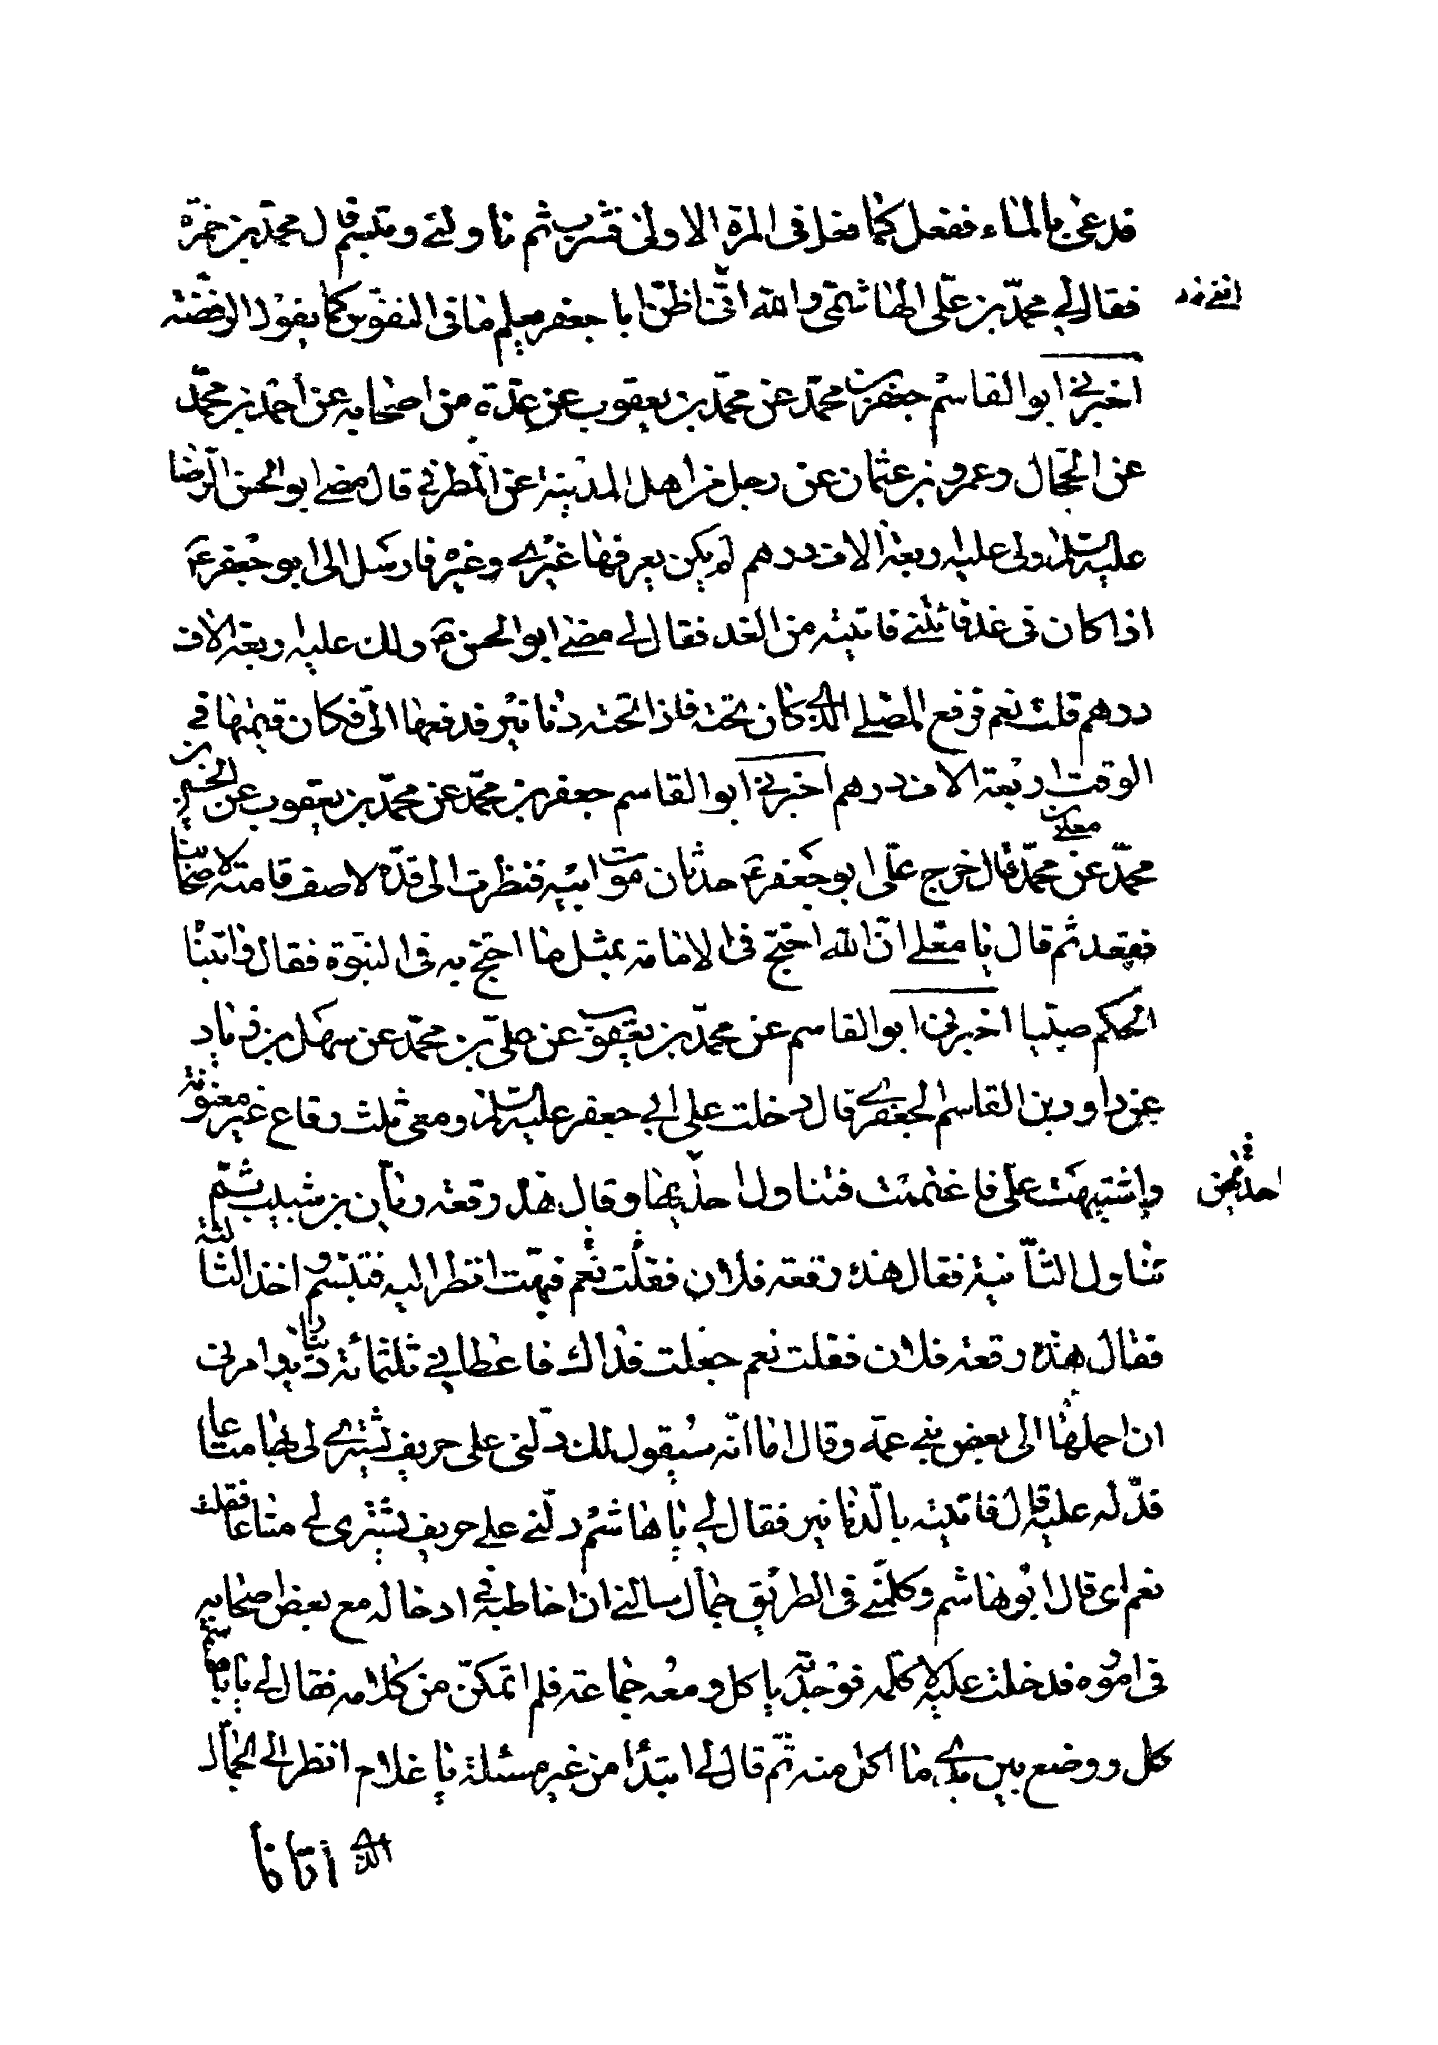 فدعى بالماء ففعل كما فعل فى المرة الاولى فشرب ثم ناولنى وتبسم قال محمد بن حمزة
فقال لي محمد بن على الهاشمى والله اننى اظن ابا جعفر يعلم ما فى النفوس كما يقول الرافضة
اخبرنى ابو القاسم جعفر بن محمد عن محمد بن يعقوب عن عدة من اصحابه عن احمد بن محمد
عن الحجال وعمرو بن عثمان عن رجل من اهل المدينة عن المطرفى قال مضى ابو الحسن الرضا
عليه السلام ولى عليه اربعة الاف درهم لم يكن يعرفها غيرى وغيره فارسل الى ابو جعفر ع
اذا كان فى غد فائتنى فاتيته من الغد فقال لى مضى ابو الحسن ع ولك عليه اربعة الاف
درهم قلت نعم فرفع المصلى الذى كان تحته فاذا تحته دنانير فدفعها الى فكان قيمتها فى
الوقت اربعة الاف درهم اخبرنى ابو القاسم جعفر بن محمد عن محمد بن يعقوب عن الحسين بن
محمد عن معلى بن محمد قال خرج على ابو جعفر ع حدثان موت ابيه فنظرت الى قده لاصف قامته لاصحابنا
فقعد ثم قال يا معلى ان الله احتج فى الامامة بمثل ما احتج به فى النبوة فقال واتيناه
الحكم صبيا اخبرنى ابو القاسم عن محمد بن يعقوب عن على بن محمد عن سهل بن زياد
عن داود بن القاسم الجعفرى قال دخلت على ابي جعفر عليه السلام ومعى ثلث رقاع غير معنونة
واشتبهت على فاغتممت فتناول احديها وقال هذه رقعة ريان بن شبيب ثم
تناول الثانية فقال هذه رقعة فلان فقلت نعم فبهت انظر اليه فتبسم واخذ الثالثة
فقال هذه رقعة فلان فقلت نعم جعلت فداك فاعطانى ثلثمائة دينار وامرنى
ان احملها الى بعض بنى عمه وقال اما انه سيقول لك دلنى على حريف يشترى لى بها متاعا
فدله عليه قال فاتيته بالدنانير فقال لى يا با هاشم دلنى على حريف يشترى لى متاعا فقلت
نعم اى قال ابو هاشم وكلمنى فى الطريق جمال سالنى ان اخاطبه فى ادخاله مع بعض اصحابه
فى اموره فدخلت عليه لاكلمه فوجدته ياكل ومعه جماعة فلم اتمكن من كلامه فقال لى يا با هاشم
كل ووضع بين يدى ما اكل منه ثم قال لى ابتدأ من غير مسئلة يا غلام انظر الى الجمال
الذى اتانا